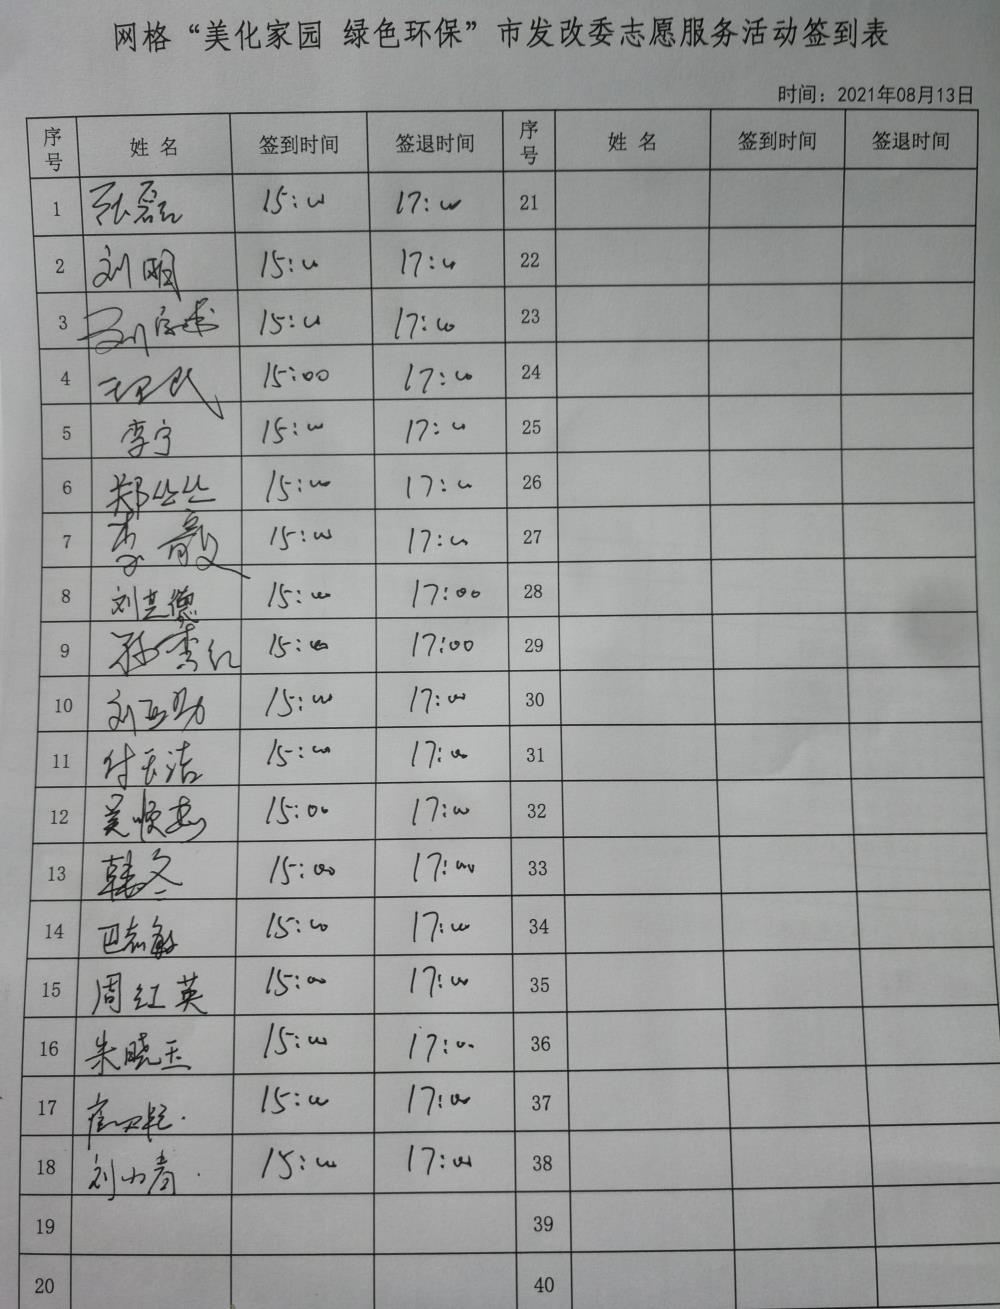 网格“美化家园 绿色环保”市发改委志愿服务活动签到表
时间：2021年08月13日
序号 姓名 签到时间 签退时间 序号 姓名 签到时间 签退时间
1 张磊 15:00 17:00 21
2 刘明 15:00 17:00 22
3 刘 15:00 17:00 23
4 15:00 17:00 24
5 李宁 15:00 17:00 25
6 郑丛丛 15:00 17:00 26
7 李毅 15:00 17:00 27
8 刘德 15:00 17:00 28
9 孙红 15:00 17:00 29
10 刘 15:00 17:00 30
11 付玉洁 15:00 17:00 31
12 吴顺 15:00 17:00 32
13 韩冬 15:00 17:00 33
14 巴志敏 15:00 17:00 34
15 周红英 15:00 17:00 35
16 朱晓玉 15:00 17:00 36
17 15:00 17:00 37
18 刘小青 15:00 17:00 38
19 39
20 40